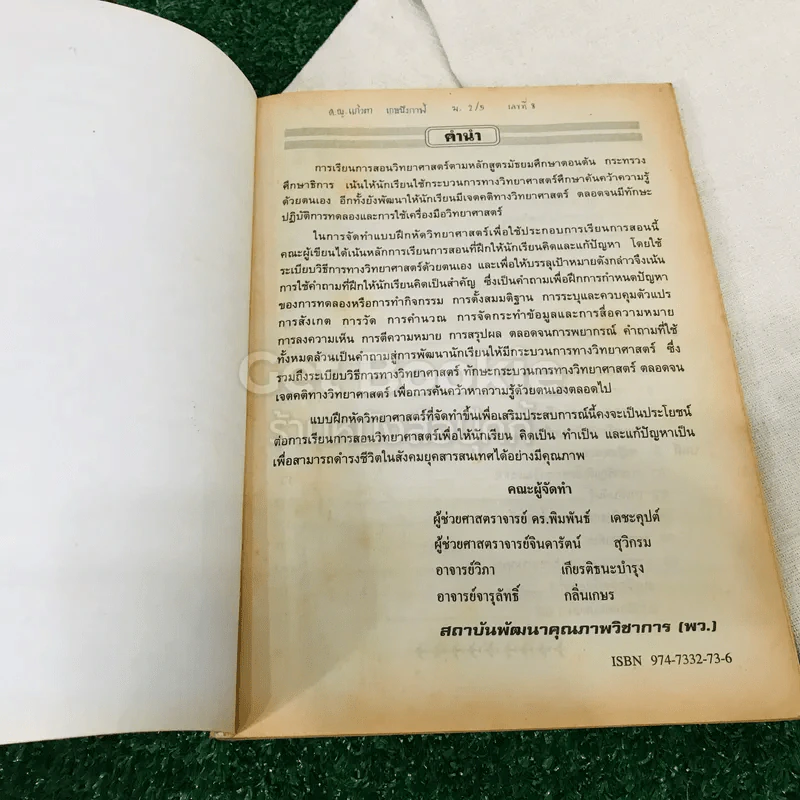 ด.ญ. แก้วตา เกษนึกาฬ ม. 2/5 เลขที่ 8
คำนำ
การเรียนการสอนวิทยาศาสตร์ตามหลักสูตรมัธยมศึกษาตอนต้น กระทรวง
ศึกษาธิการ เน้นให้นักเรียนใช้กระบวนการทางวิทยาศาสตร์ศึกษาค้นคว้าความรู้
ด้วยตนเอง อีกทั้งยังพัฒนาให้นักเรียนมีเจตคติทางวิทยาศาสตร์ ตลอดจนมีทักษะ
ปฏิบัติการทดลองและการใช้เครื่องมือวิทยาศาสตร์
ในการจัดทำแบบฝึกหัดวิทยาศาสตร์เพื่อใช้ประกอบการเรียนการสอนนี้
คณะผู้เขียนได้เน้นหลักการเรียนการสอนที่ฝึกให้นักเรียนคิดและแก้ปัญหา โดยใช้
ระเบียบวิธีการทางวิทยาศาสตร์ด้วยตนเอง และเพื่อให้บรรลุเป้าหมายดังกล่าวจึงเน้น
การใช้คำถามที่ฝึกให้นักเรียนคิดเป็นสำคัญ ซึ่งเป็นคำถามเพื่อฝึกการกำหนดปัญหา
ของการทดลองหรือการทำกิจกรรม การตั้งสมมติฐาน การระบุและควบคุมตัวแปร
การสังเกต การวัด การคำนวณ การจัดกระทำข้อมูลและการสื่อความหมาย
การลงความเห็น การตีความหมาย การสรุปผล ตลอดจนการพยากรณ์ คำถามที่ใช้
ทั้งหมดล้วนเป็นคำถามสู่การพัฒนานักเรียนให้มีกระบวนการทางวิทยาศาสตร์ ซึ่ง
รวมถึงระเบียบวิธีการทางวิทยาศาสตร์ ทักษะกระบวนการทางวิทยาศาสตร์ ตลอดจน
เจตคติทางวิทยาศาสตร์ เพื่อการค้นคว้าหาความรู้ด้วยตนเองตลอดไป
แบบฝึกหัดวิทยาศาสตร์ที่จัดทำขึ้นเพื่อเสริมประสบการณ์นี้คงจะเป็นประโยชน์
ต่อการเรียนการสอนวิทยาศาสตร์เพื่อให้นักเรียน คิดเป็น ทำเป็น และแก้ปัญหาเป็น
เพื่อสามารถดำรงชีวิตในสังคมยุคสารสนเทศได้อย่างมีคุณภาพ
คณะผู้จัดทำ
ผู้ช่วยศาสตราจารย์ ดร.พิมพันธ์ เดชะคุปต์
ผู้ช่วยศาสตราจารย์จินดารัตน์ สุวิกรม
อาจารย์วิภา เกียรติธนะบำรุง
อาจารย์จารุลัทธิ์ กลิ่นเกษร
สถาบันพัฒนาคุณภาพวิชาการ (พว.)
ISBN 974-7332-73-6